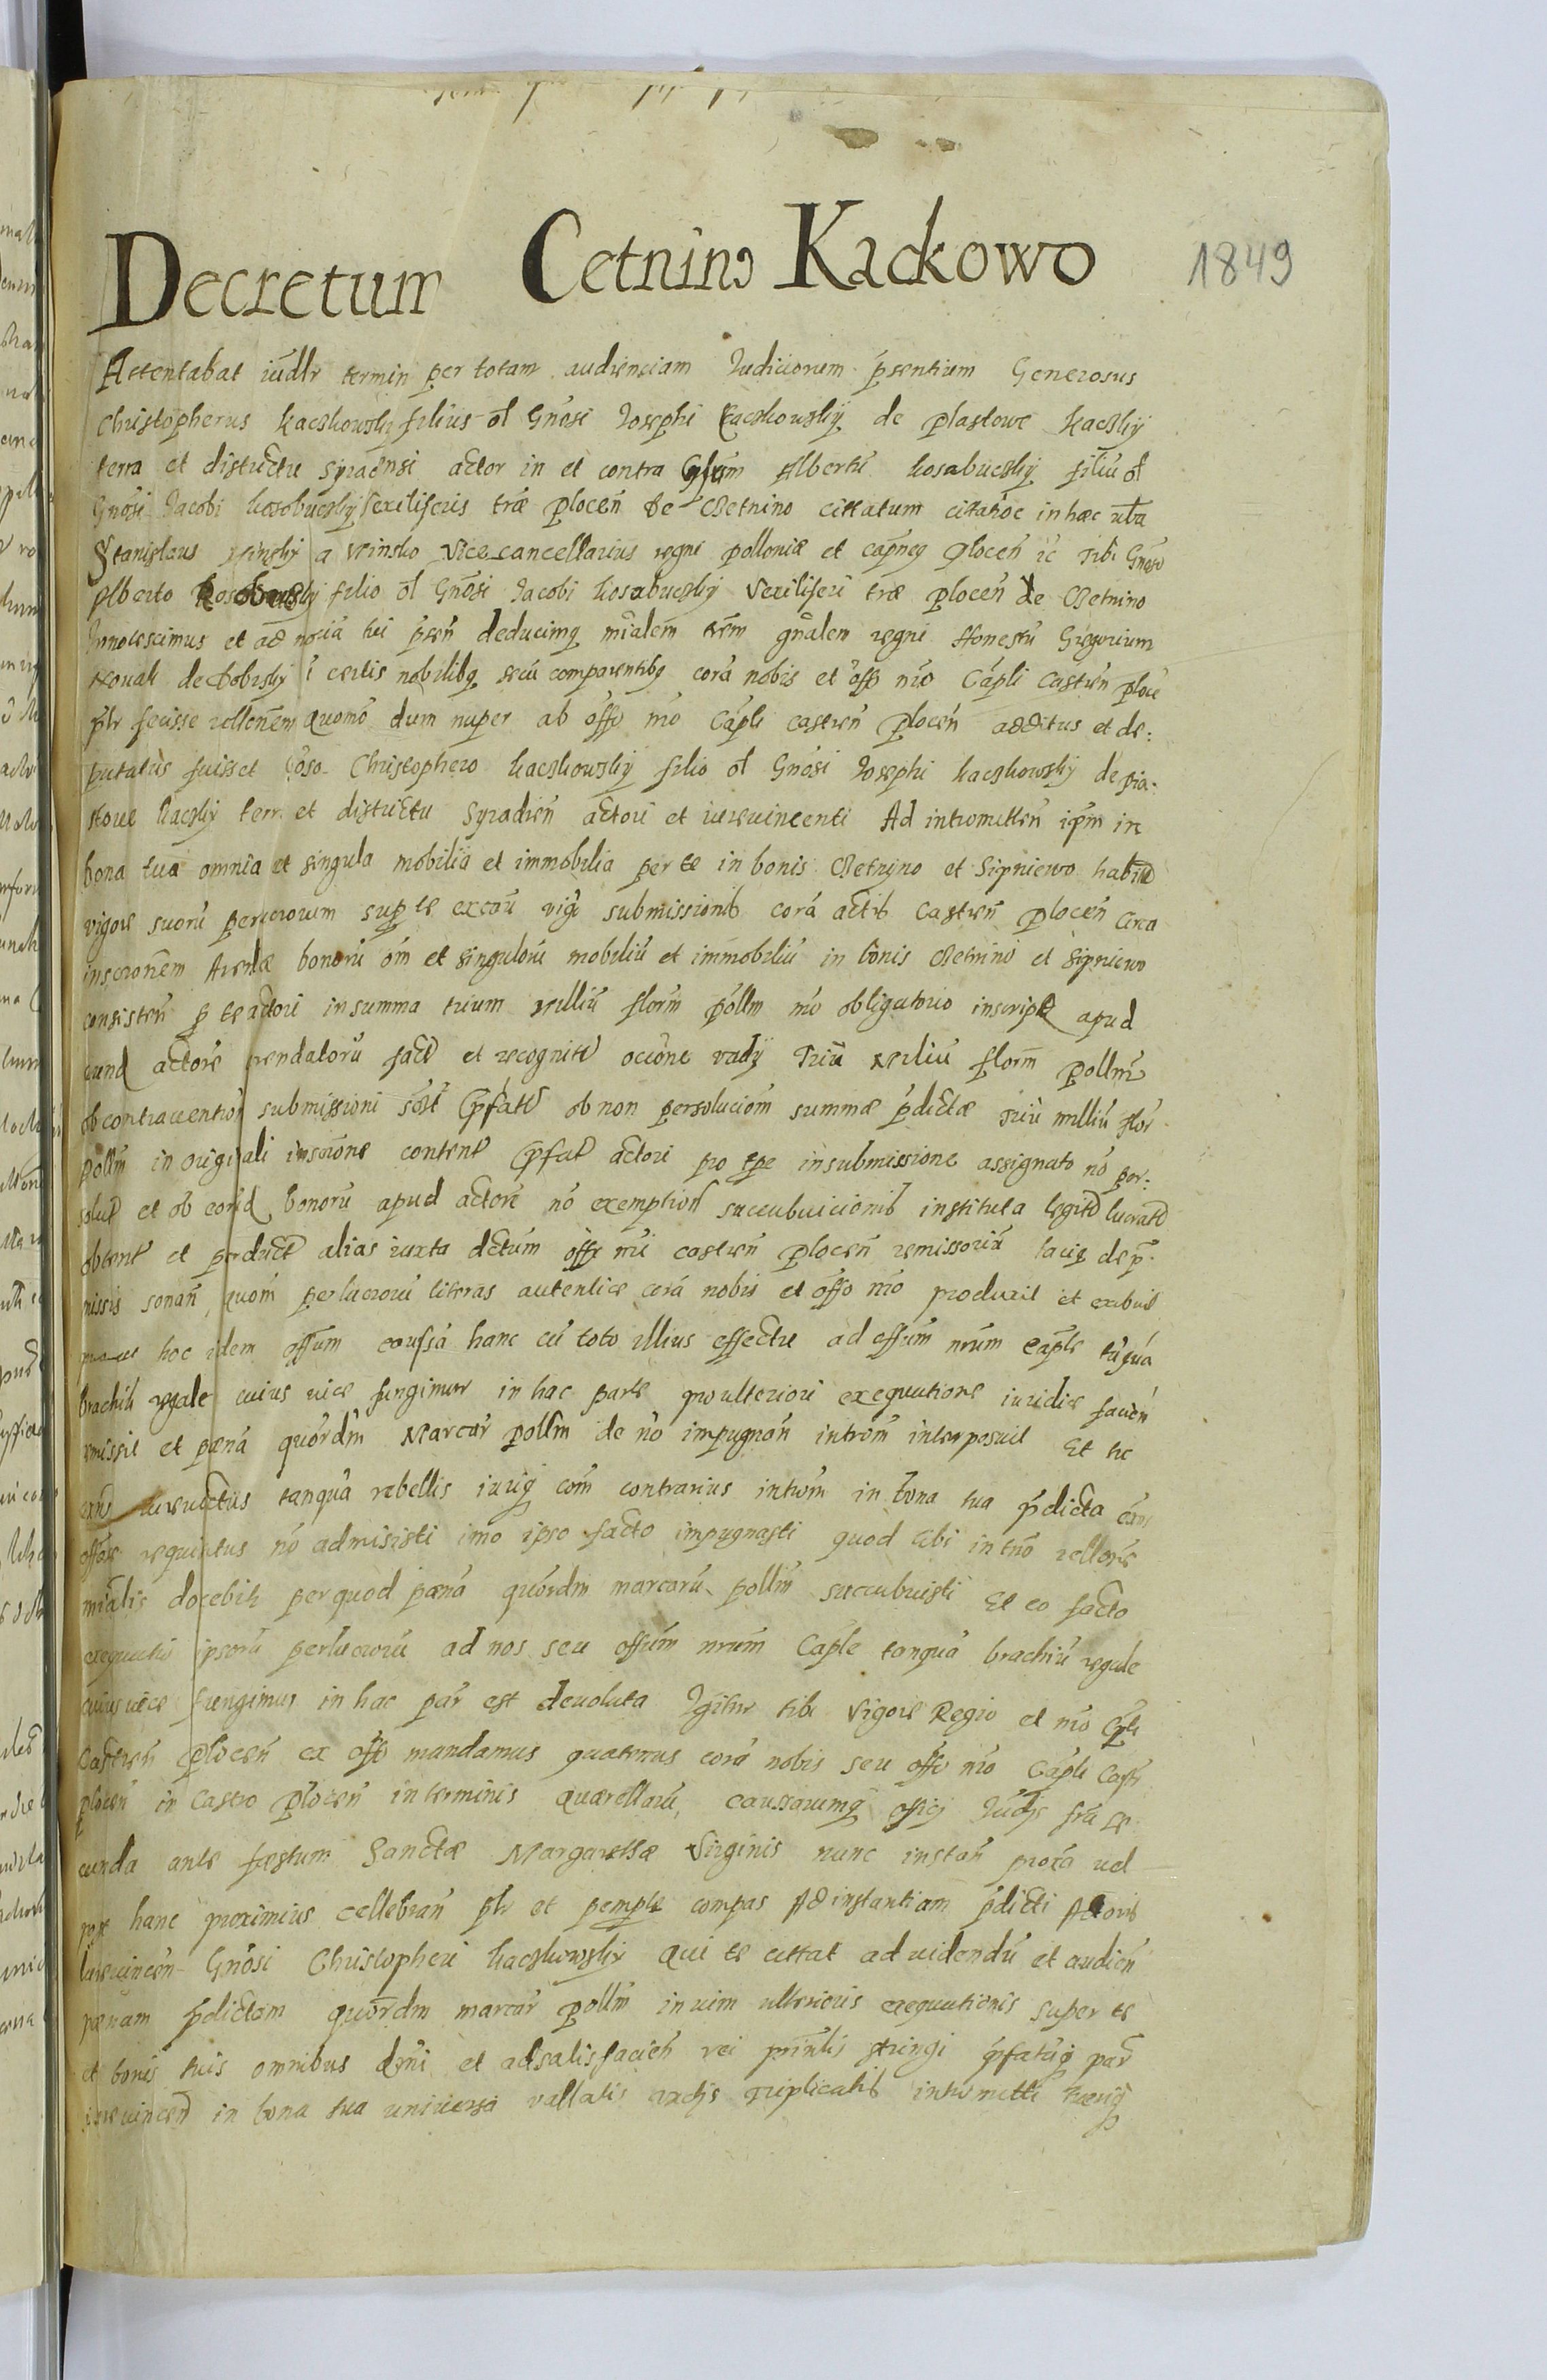 Decretum Cetnino Kackowo 1849
Attentabat iudlr termin per totam audienciam Iudiciorum pñsentium Generosus
Christopherus kaczkowsky filius ol Gnosi Iosephi kaczkowskÿ de plastowe kaczkÿ
terra et districtu Syraensi actor in et contra Gñsum Albertũ kosabuczkÿ filiũ ol
Gnosi Iacobi kossobuczkÿ Vexiliferis træ plocen de Cetnino cittatum in hæc vba
Stanislaus a minsko Vice cancellarius regni polloniæ et capneq plocen ic Tibi Gnoso
Alberto filio ol Gnõsi Iacobi kosabuczkÿ Vexiliferi træ plocen de Cetnino
Innotescimus et ad nociã tui psen deducimq mialem trem gnalem regni Honestũ Gregorium
Nouak de Bobrsky i certis nobilibq secũ comparentibq corã nobis et offo nro Capli Castren ploce
plr fecisse rellonem quomo dum nuper ab offo nro Capli castren Plocen additus et de:
putatus fuisset Goso Christophero kaczkowskÿ filio ol Gnosi Iosephi kaczkowskÿ de pia:
stowe kaczkÿ terr et districtu Syradien actori et iurevincenti Ad intromitten ipm in
bona tua omnia et singula mobilia et immobilia per te in bonis Cetnyno et Sipniewo habit
vigore suorũ perlucrorum sup te ex vig submissionib corã actis Castren Plocen circa
inscrionem Arendæ bonorũ om et singulorũ mobiliũ et immobiliũ in bonis Cetnino et Sipniewo
consisten p te actori in summa trium milliũ florm pollm mo obligatorio inscript apud
eund actore arendatorũ fact et recognit ocione vadÿ Triũ miliũ florm pollm
ob contrauention submissioni sort pfat ob non persolucionem summæ pdictæ Triũ milliũ flor
pollm in originali inscrione content pfat actori pro tpe in submissione assignato nõ per:
solut et ob eornd bonorũ apud actore nõ exemption succubuicionib instituta legit lucrat
obtent et product alias iuxta dctum offi nri castren plocen remissoriũ de p
missis sonan, quom perlucrorũ literas autentice corã nobis et offo nro produxit et exibuit
hoc idem offum caussã hanc cũ toto illius effectu ad offum nrum Caple tuqua
brachiũ regale cuius vice fungimur in hac parte pro ulteriori exequutione iuridice facien
remissit et pænã quordm Marcar pollm de nõ impugnan introm interposuit Et tu
iurevictus tanquã rebellis iuriq com contrarius introm in bona tua pdicta
offose requisitus nõ admisisti imo ipso facto impugnasti quod tibi in tno rellone
mialis docebit per quod pænã quordm marcarũ pollm succubuisti Et eo facto
exequutio ipsorũ perlucrorũ ad nos seu offum nrum Caple tanquã brachiũ regale
cuius vice fungimur in hac par est deuoluta Igitur tibi Vigore Regio et nro Cpli
Castren Plocen ex offo mandamus quatenus corã nobis seu offo nro Capli Cast
plocen in Castro Plocen in terminis quærellarũ, caussarumq officÿ Iudÿ fra se:
cunda ante festum Sanctæ Margarethæ Virginis nunc instan proxã vel
post hanc proximius cellebran plr et pempte compas Ad instantiam pdicti Actoris
iurevincen Gnõsi Christopheri kaczkowskÿ qui te cittat ad videndũ et audien
pænam pdictam quordm marcar pollm in vim ulterioris exequutionis super te
et bonis tuis omnibus dñi et ad satisfacien rei prinlis stringi pfatuq par
iurevincen in bona tua universa vallatis vadÿs Triplicatis intromitti